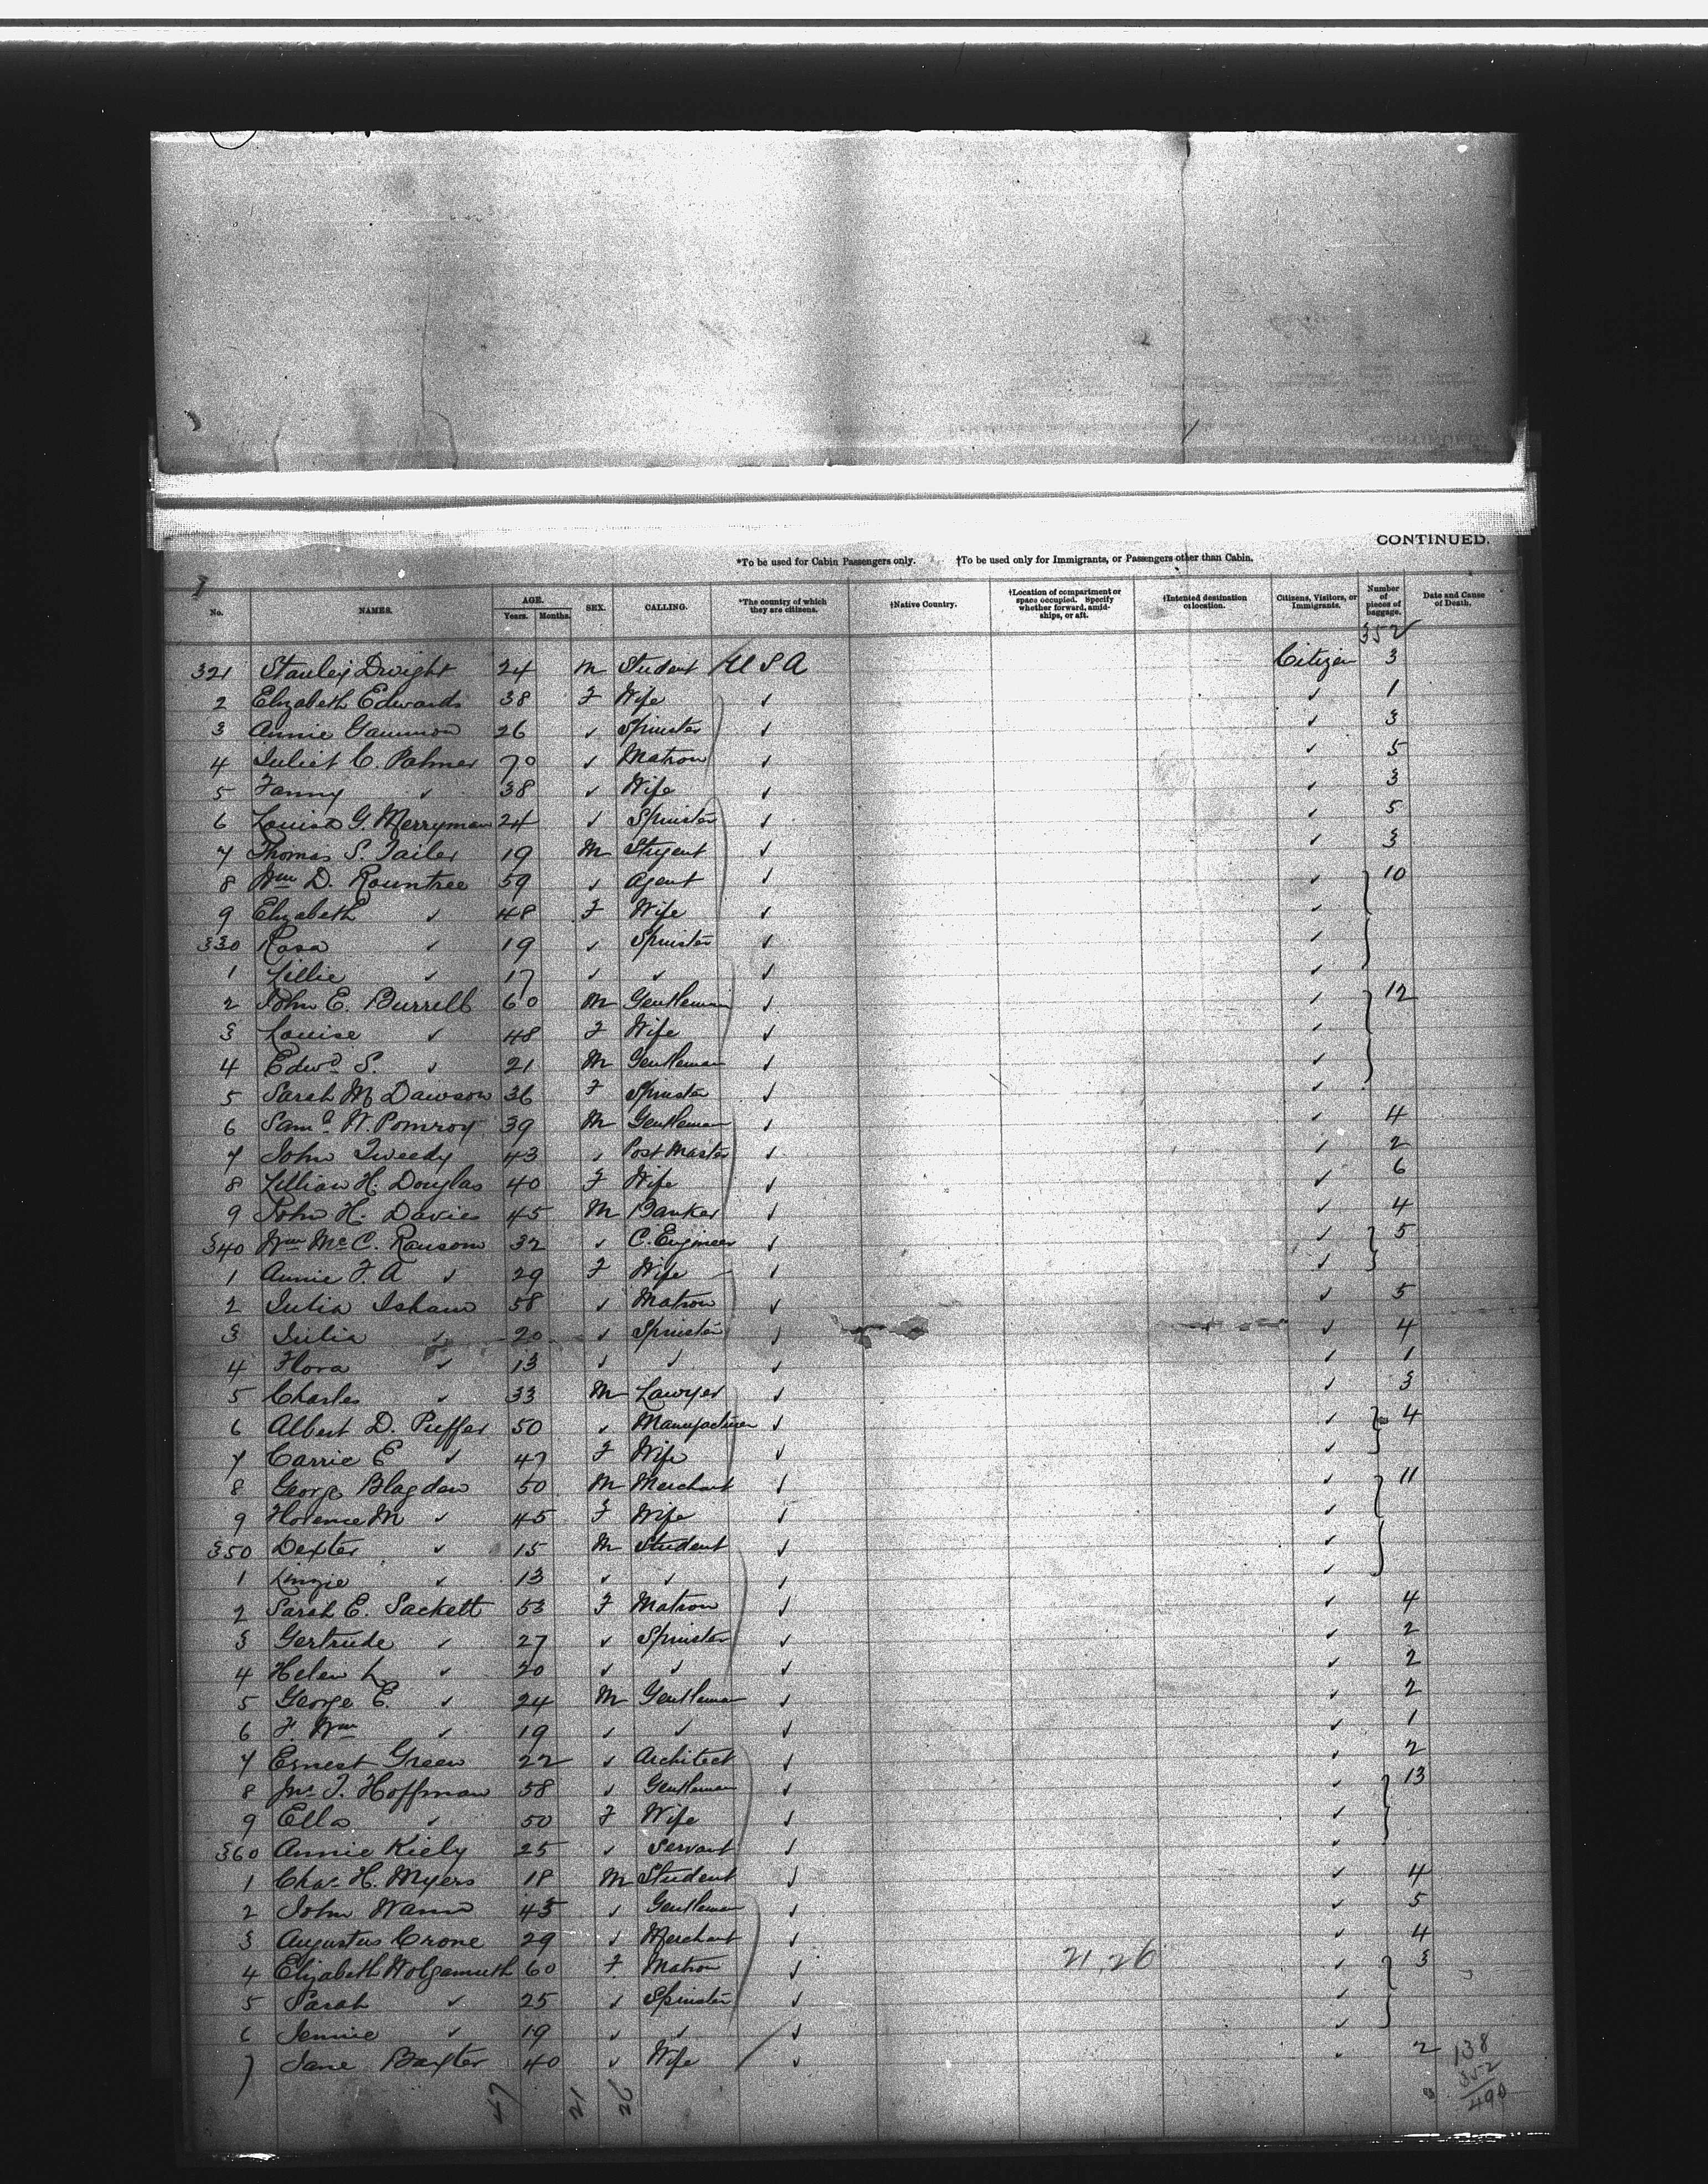 CONTINUED.
*To be used for Cabin Passengers only. †To be used only for Immigrants, or Passengers other than Cabin.
No. NAMES. AGE. Years. Months. SEX. CALLING. *The country of which they are citizens. †Native Country. †Location of compartment or space occupied. Specify whether forward, amidships, or aft. †Intented destination or location. Citizens, Visitors, or Immigrants. Number of pieces of baggage. Date and Cause of Death.
352
321 Stanley Dwight 24 M Student U S A Citizen 3
2 Elizabeth Edwards 38 F Wife ✓ ✓ 1
3 Annie Gammon 26 ✓ Spinster ✓ ✓ 3
4 Juliet C. Palmer 70 ✓ Matron ✓ ✓ 5
5 Fanny ✓ 38 ✓ Wife ✓ ✓ 3
6 Louisa G. Merryman 24 ✓ Spinster ✓ ✓ 5
7 Thomas S. Tailer 19 M Student ✓ ✓ 3
8 Wm D. Rountree 59 ✓ Agent ✓ ✓ 10
9 Elizabeth ✓ 48 F Wife ✓ ✓
330 Rosa ✓ 19 ✓ Spinster ✓ ✓
1 Lillie ✓ 17 ✓ ✓ ✓ ✓
2 John E. Burrell 60 M Gentleman ✓ ✓ 12
3 Louise ✓ 48 F Wife ✓ ✓
4 Edwd S. ✓ 21 M Gentleman ✓ ✓
5 Sarah M Dawson 36 F Spinster ✓ ✓
6 Saml W. Pomroy 39 M Gentleman ✓ ✓ 4
7 John Tweedy 43 ✓ Post Master ✓ ✓ 2
8 Lillian H. Douglas 40 F Wife ✓ ✓ 6
9 John H. Davies 45 M Banker ✓ ✓ 4
340 Wm McC. Ransom 32 ✓ C. Engineer ✓ ✓ 5
1 Annie F. A ✓ 29 F Wife ✓ ✓
2 Julia Isham 58 ✓ Matron ✓ ✓ 5
3 Julia ✓ 20 ✓ Spinster ✓ ✓ 4
4 Flora ✓ 13 ✓ ✓ ✓ ✓ 1
5 Charles ✓ 33 M Lawyer ✓ ✓ 3
6 Albert D. Puffer 50 ✓ Manufacturer ✓ ✓ 4
7 Carrie E ✓ 47 F Wife ✓ ✓
8 George Blagden 50 M Merchant ✓ ✓ 11
9 Florence M ✓ 45 F Wife ✓ ✓
350 Dexter ✓ 15 M Student ✓ ✓
1 ✓ 13 ✓ ✓ ✓ ✓
2 Sarah E. Sackett 53 F Matron ✓ ✓ 4
3 Gertrude ✓ 27 ✓ Spinster ✓ ✓ 2
4 Helen L ✓ 20 ✓ ✓ ✓ ✓ 2
5 George E. ✓ 24 M Gentleman ✓ ✓ 2
6 F. Wm ✓ 19 ✓ ✓ ✓ ✓ 1
7 Ernest Green 22 ✓ Architect ✓ ✓ 2
8 Jno T. Hoffman 58 ✓ Gentleman ✓ ✓ 13
9 Ella ✓ 50 F Wife ✓ ✓
360 Annie Kiely 25 ✓ Servant ✓ ✓
1 Chas H. Myers 18 M Student ✓ ✓ 4
2 John 43 ✓ Gentleman ✓ ✓ 5
3 Augustus Crone 29 ✓ Merchant ✓ ✓ 4
4 Elizabeth Wolgamuth 60 F Matron ✓ 21,26 ✓ 3
5 Sarah ✓ 25 ✓ Spinster ✓ ✓
6 Jennie ✓ 19 ✓ ✓ ✓ ✓
7 Jane Baxter 40 ✓ Wife ✓ ✓ 2
138
352
490
47 21 26